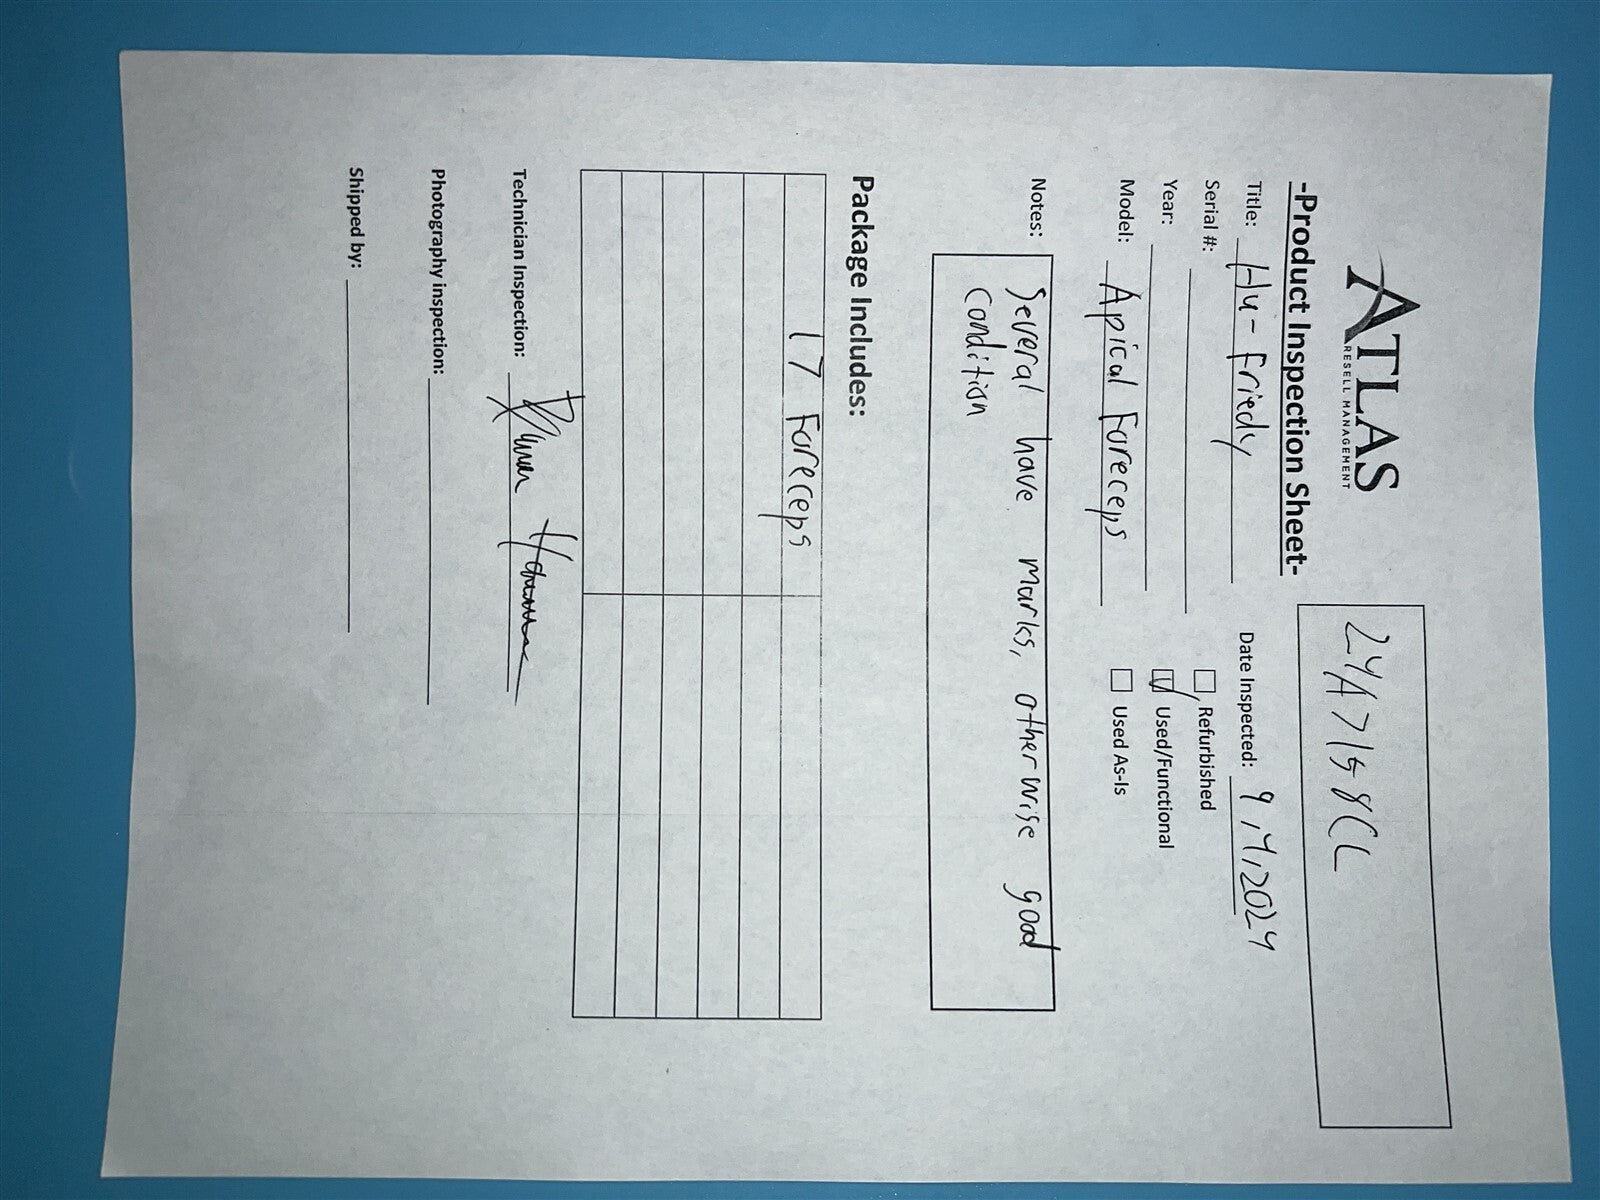 ATLAS
RESELL MANAGEMENT
24A7158CC
-Product Inspection Sheet-
Title: Hu-Friedy
Date Inspected: 9/4/2024
Serial #:
Refurbished
Year:
Used/Functional
Model: Apical Foreceps
Used As-Is
Notes: Several have marks, otherwise good
condition
Package Includes:
17 Foreceps
Technician Inspection:
Photography inspection:
Shipped by: